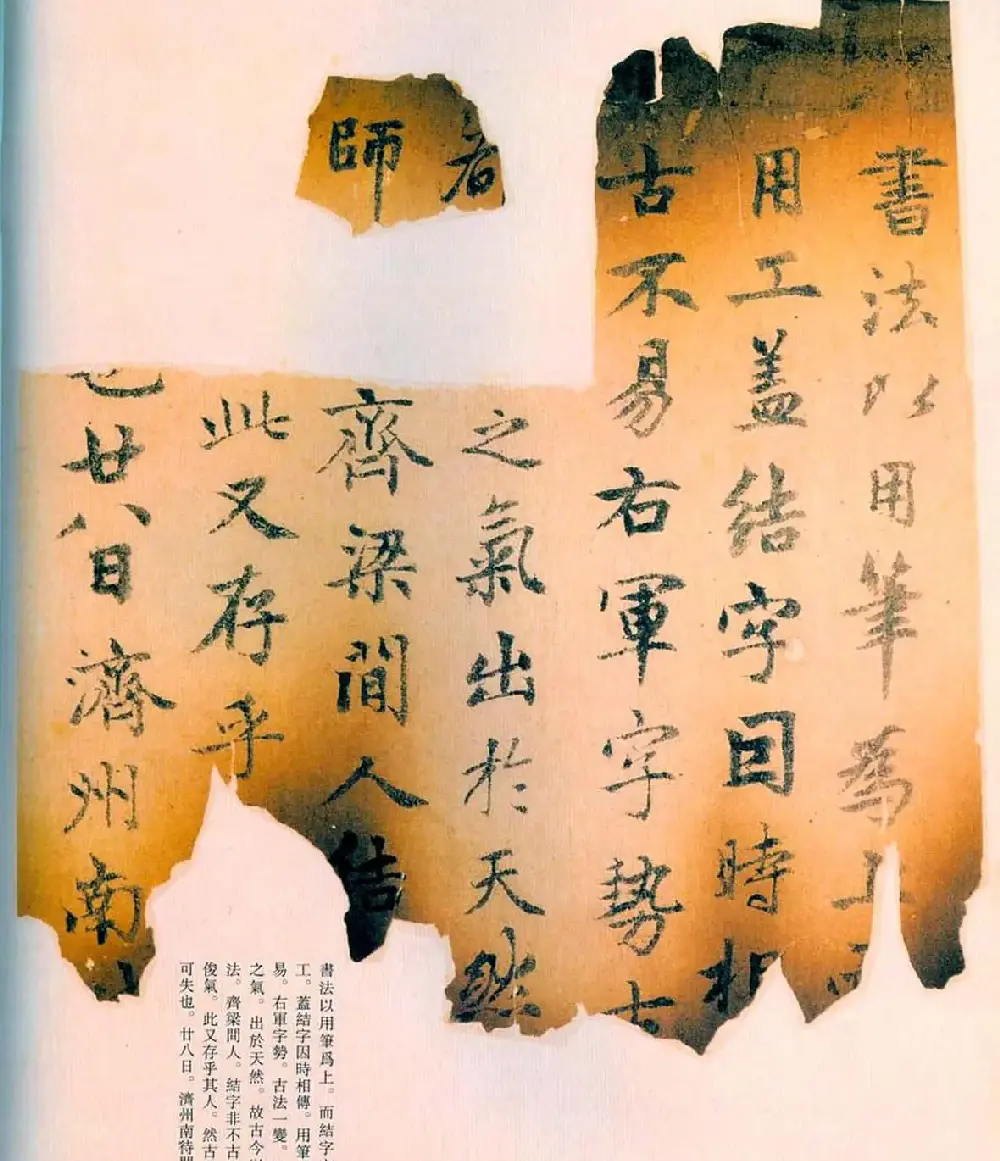 書法以用筆為上而
用工盖結字囙時相
古不易右軍字勢古
者
之氣出於天然
師
齊梁間人結
此又存乎
也廿八日濟州南
書法以用筆爲上。而結字
工。蓋結字因時相傳。用筆
易。右軍字勢。古法一變。
之氣。出於天然。故古今
法。齊梁間人。結字非不古
俊氣。此又存乎其人。然古
可失也。廿八日。濟州南待